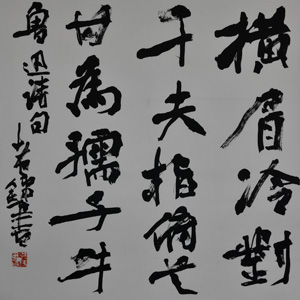 橫眉冷對
千夫指俯首
甘為孺子牛
魯迅詩句